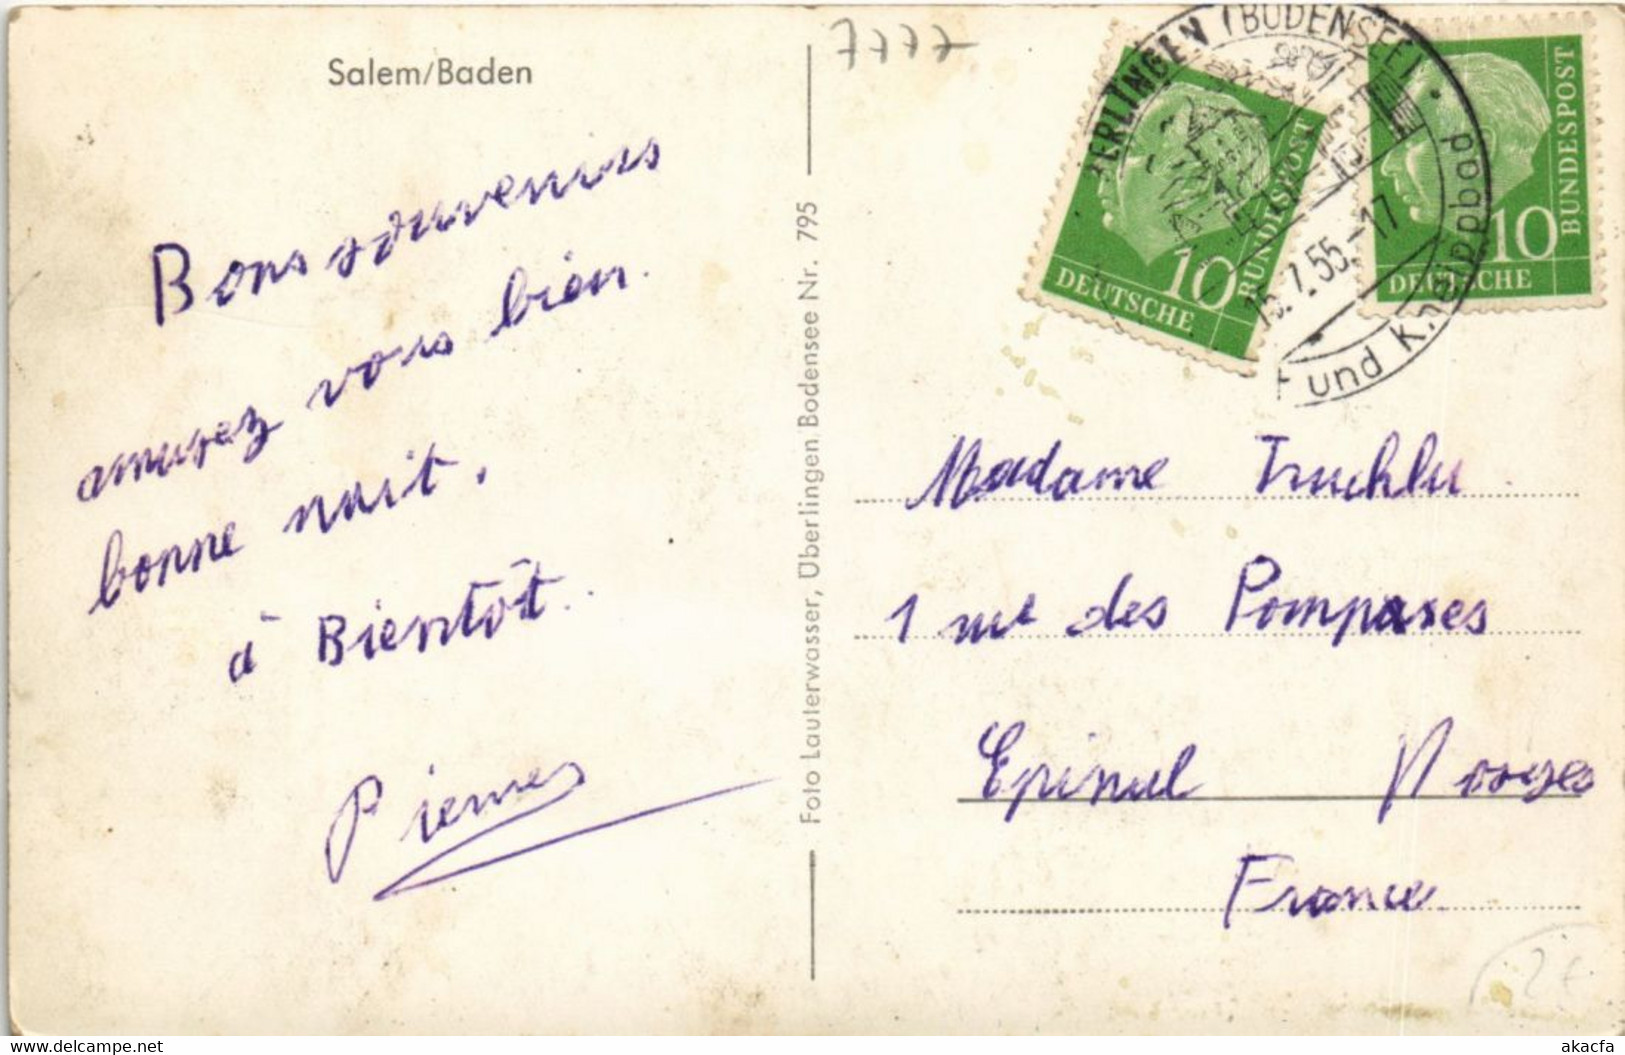 7777
Salem/Baden
Bons souvenirs
amusez vous bien.
bonne nuit.
à Bientôt..
Pierres
Foto Lauterwasser, Überlingen Bodensee Nr. 795
ERLINGEN (BODENSEE)
15.7.55.-17
und Kneippbad
10
DEUTSCHE
BUNDESPOST
10
DEUTSCHE
BUNDESPOST
Madame
1 rue des Pompares
Epinal Vosges
France
2€
www.delcampe.net
akacfa